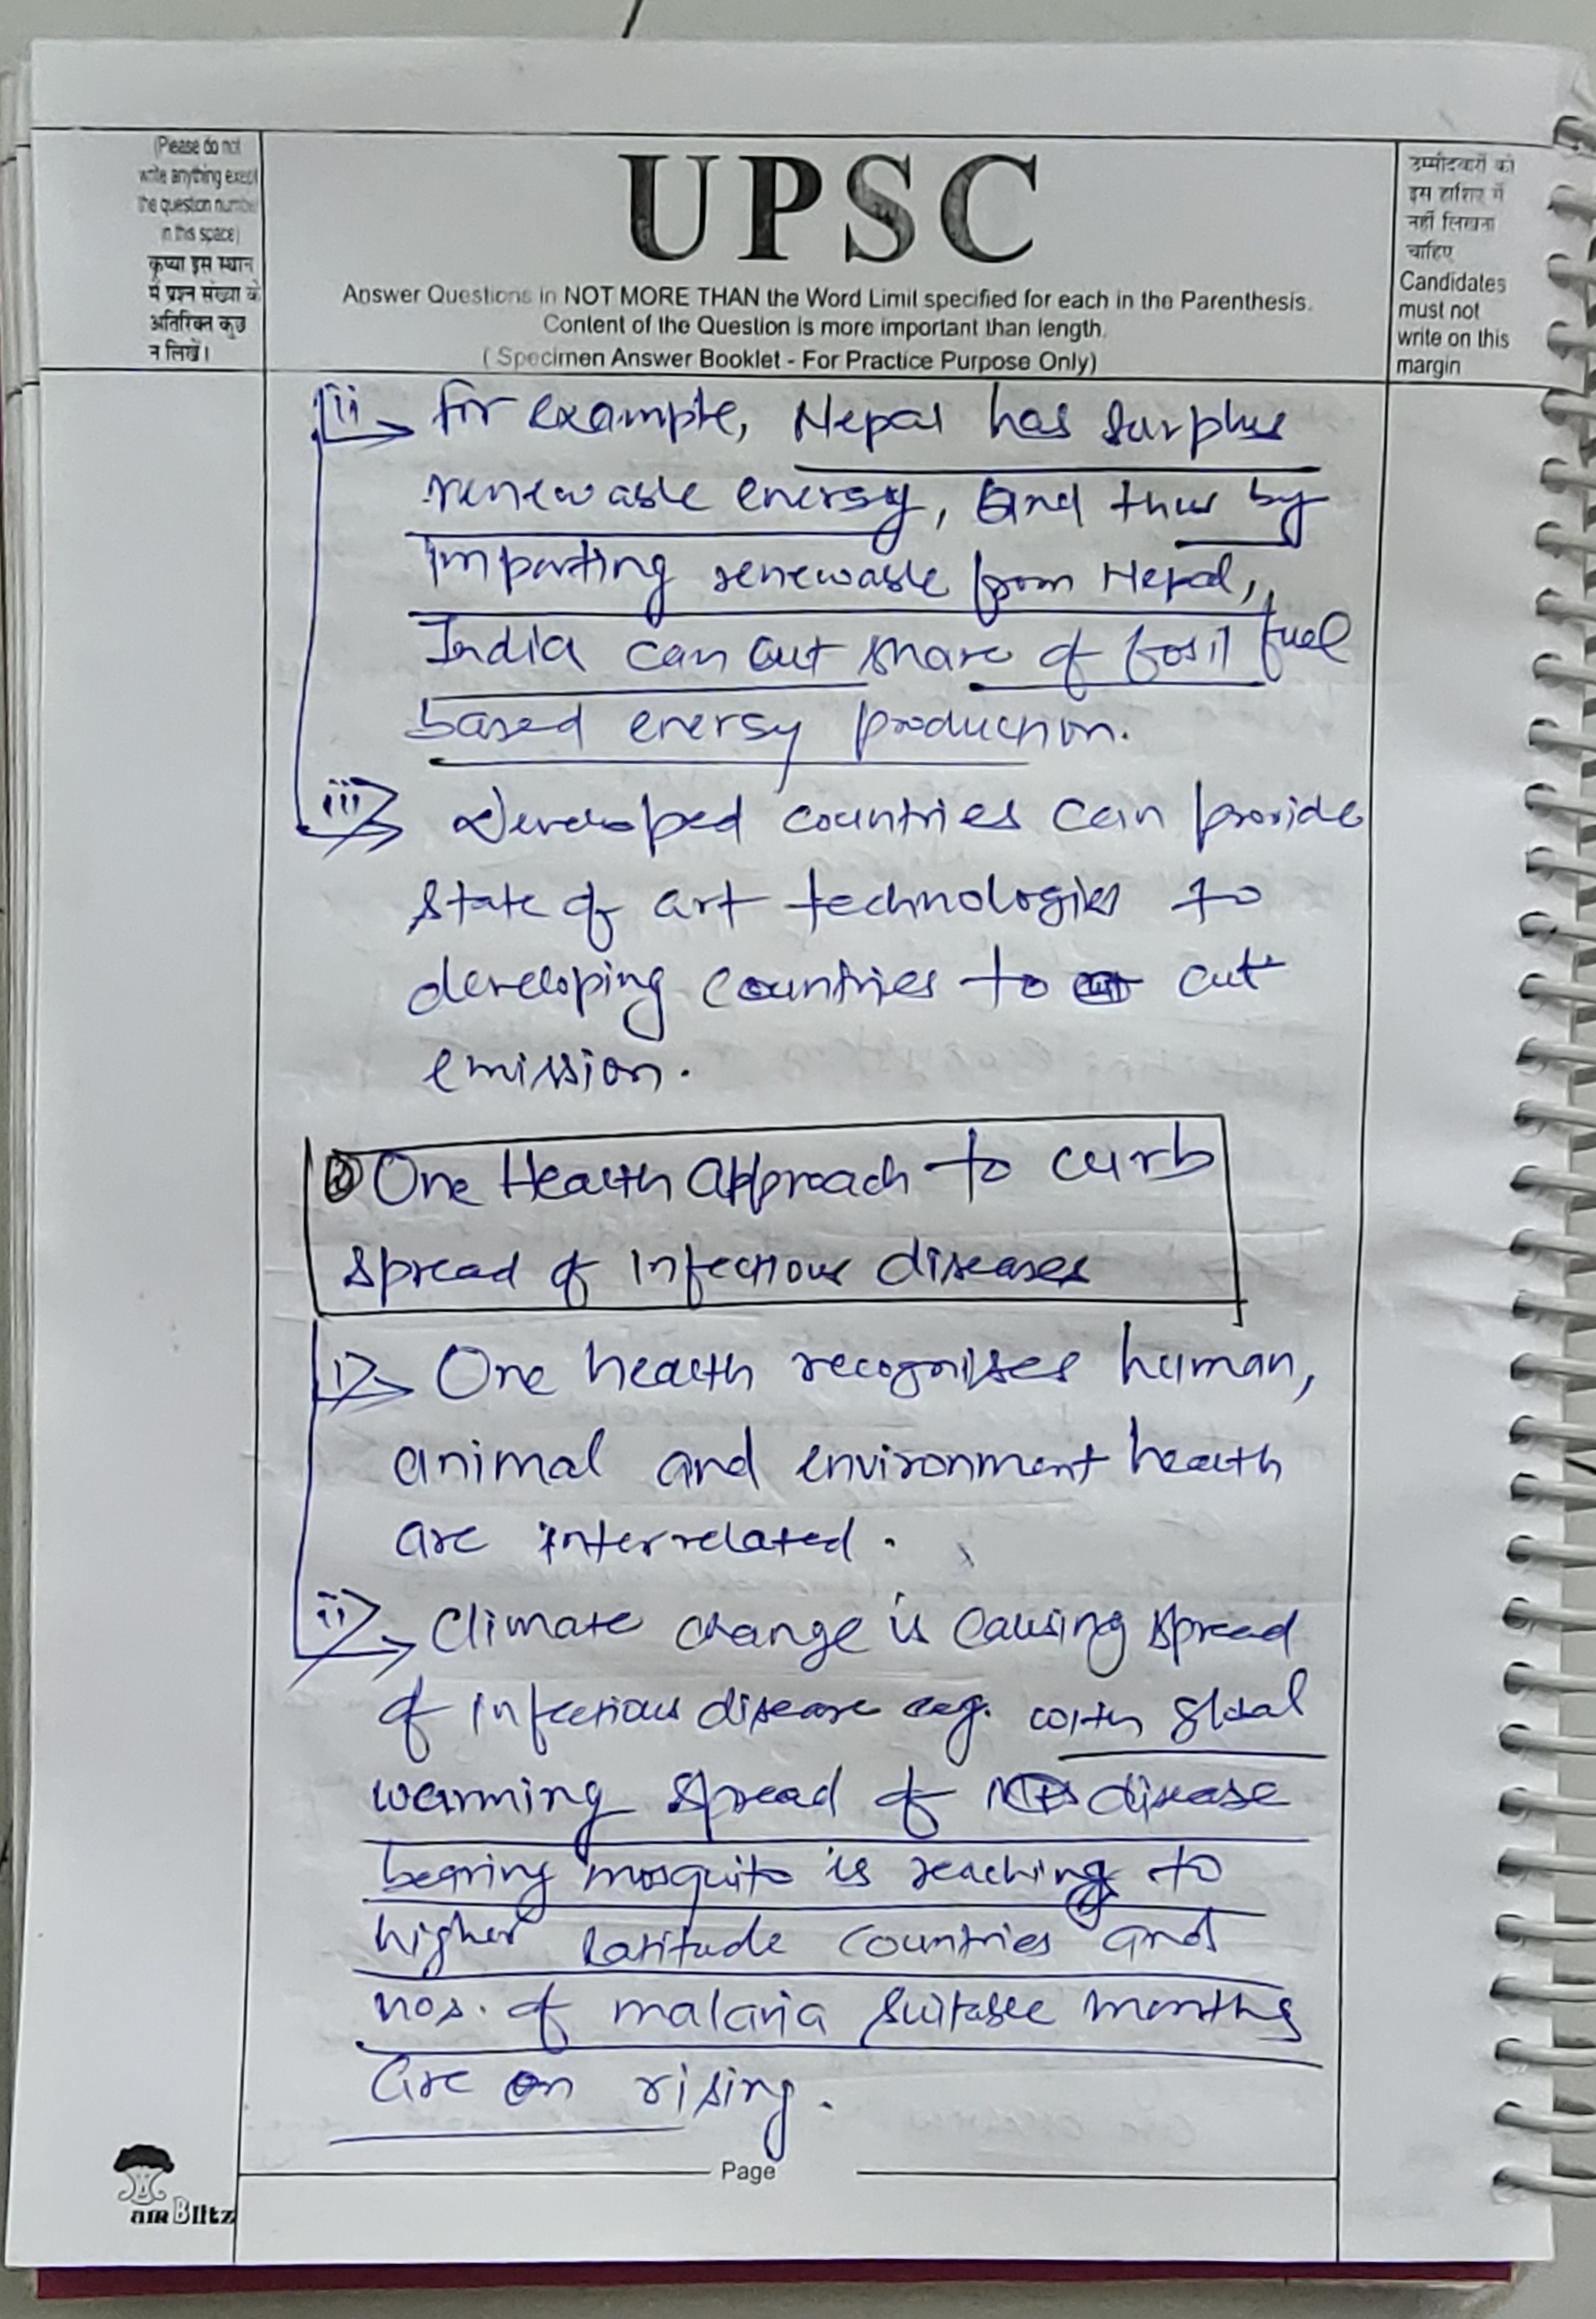 (Please do not
write anything except
the question number
in this space)
कृप्या इस स्थान
में प्रश्न संख्या के
अतिरिक्त कुछ
न लिखें।
UPSC
Answer Questions in NOT MORE THAN the Word Limit specified for each in the Parenthesis.
Content of the Question is more important than length.
( Specimen Answer Booklet - For Practice Purpose Only)
उम्मीदवारों को
इस हाशिए में
नहीं लिखना
चाहिए
Candidates
must not
write on this
margin
ii for example, Nepal has surplus
renewable energy, and thus by
importing renewable from Nepal,
India can cut share of fosil fuel
based energy production.
iii Developed countries can provide
state of art technologies to
developing countries to cut
emission.
One Health Approach to curb
spread of infectious diseases
i One health recognises human,
animal and environment health
are interrelated.
ii Climate change is causing spread
of infectious disease eg. with global
warming spread of disease
bearing mosquito is reaching to
higher latitude countries and
nos. of malaria suitable months
are on rising.
Page
am Blitz